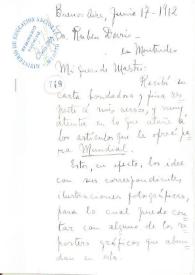 Buenos Aires, Junio 17-1912
Sr. Rubén Darío.
en Montevideo
Mi querido Maestro:
Recibí su
carta bondadosa y fina res-
pecto á mis versos, y muy
atenta en lo que atañe á
los artículos que le ofrecí pa-
ra Mundial.
Estos, en efecto, los idee
con sus correspondientes
ilustraciones fotográficas,
para lo cual puedo con-
tar con alguno de los re-
porters gráficos que abun-
dan en ésta.